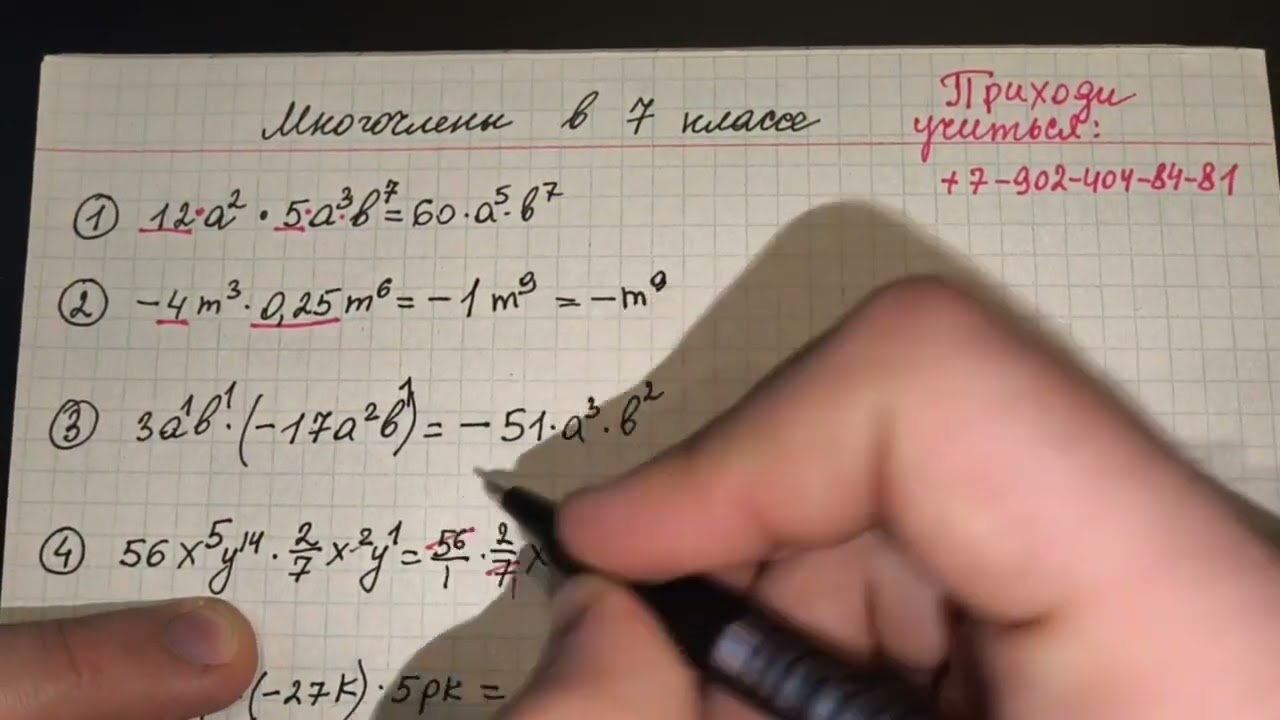 Многочлены в 7 классе
Приходи
учиться:
+7-902-404-84-81
① 12·a²·5·a³·b⁷=60·a⁵·b⁷
② -4m³·0,25m⁶=-1m⁹=-m⁹
③ 3a¹b¹·(-17a²b¹)=-51·a³·b²
④ 56x⁵y¹⁴·2/7x²y¹=56/1·2/7 1x
(-27k)·5pk=